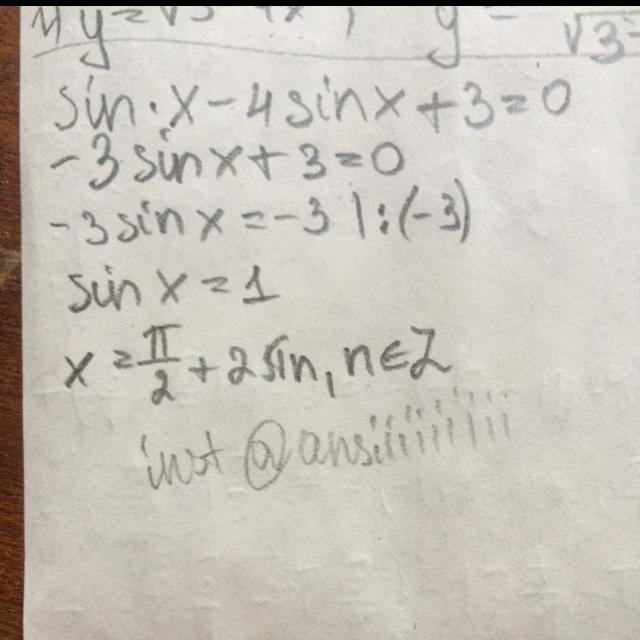 sin·x-4sinx+3=0
-3sinx+3=0
-3sinx=-3 |:(-3)
sin x=1
x=π/2+2πn, n∈Z
inst @ansiiiiiiiiii